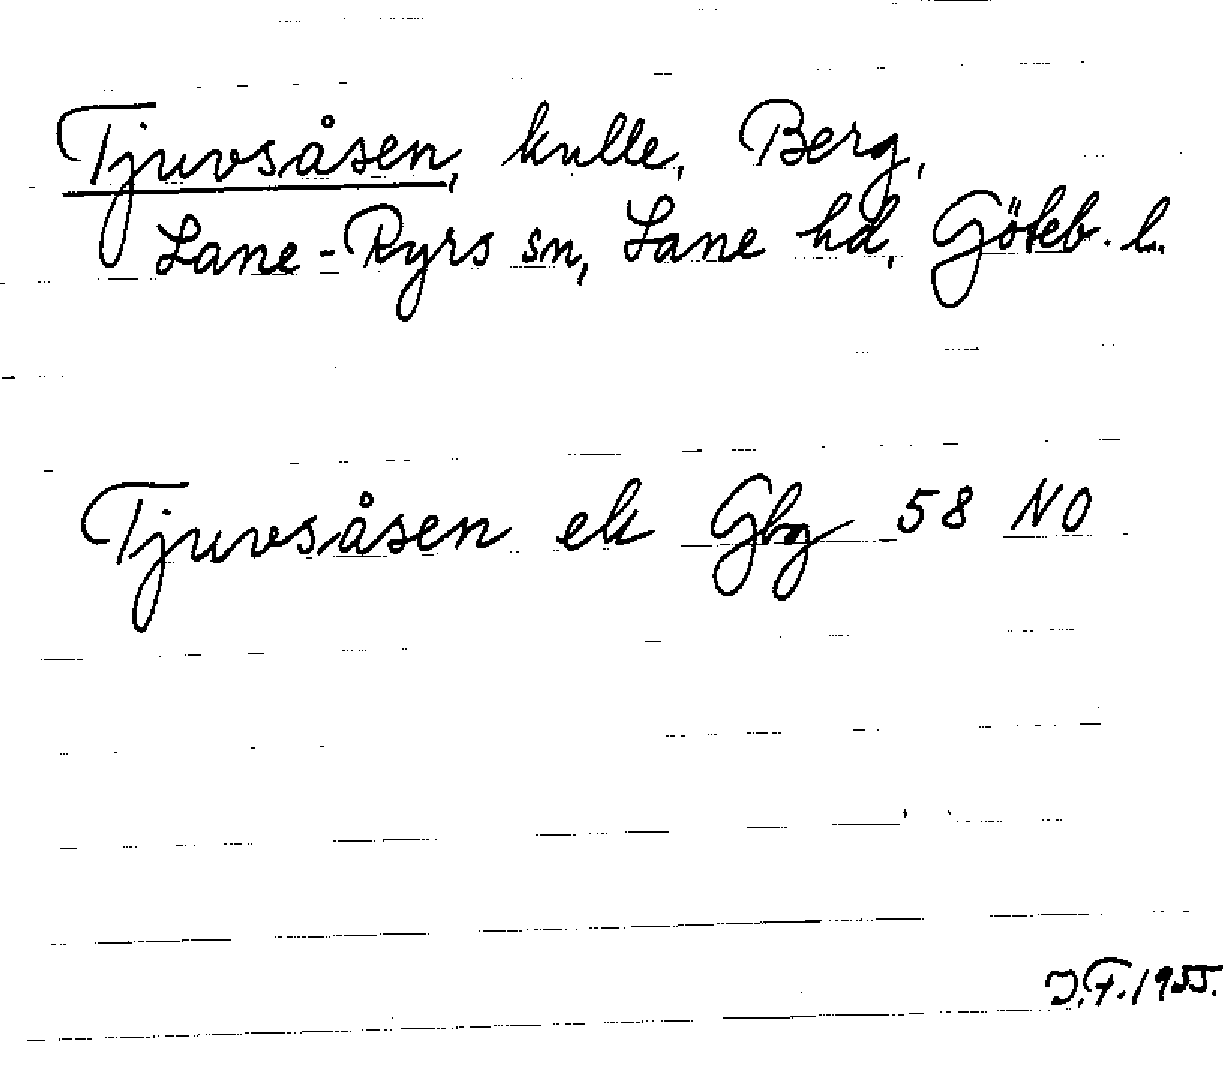 Tjuvsåsen, kulle, Berg,
Lane-Ryrs sn, Lane hd, Göteb. l.
Tjuvsåsen ek Gbg 58 NO
J.F. 1955.